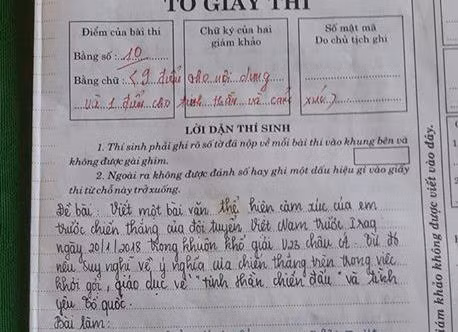 TỜ GIẤY THI
Điểm của bài thi
Bằng số: 10
Bằng chữ: (9 điểm cho nội dung
và 1 điểm cho tinh thần và cảm xúc)
Chữ ký của hai
giám khảo
Số mật mã
Do chủ tịch ghi
LỜI DẶN THÍ SINH
1. Thí sinh phải ghi rõ số tờ đã nộp về mỗi bài thi vào khung bên và
không được gài ghim.
2. Ngoài ra không được đánh số hay ghi một dấu hiệu gì vào giấy
thi từ chỗ này trở xuống.
Đề bài: Viết một bài văn thể hiện cảm xúc của em
trước chiến thắng của đội tuyển Việt Nam trước Iraq
ngày 20/1/2018 trong khuôn khổ giải U23 châu Á. Từ đó
nêu suy nghĩ về ý nghĩa của chiến thắng trên trong việc
khơi gợi, giáo dục về "tinh thần chiến đấu" và tình
yêu Tổ quốc.
Bài làm:
giám khảo không được viết vào đây.